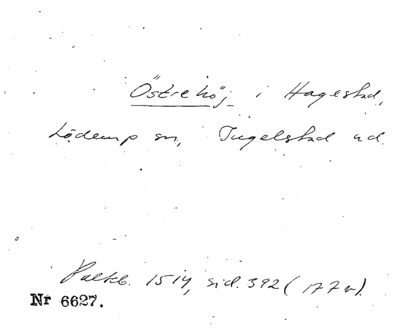 Östrehöj i Hagestad,
Löderup sn, Ingelstad hd.
Palkb. 1514, sid. 392 (177v).
Nr 6627.